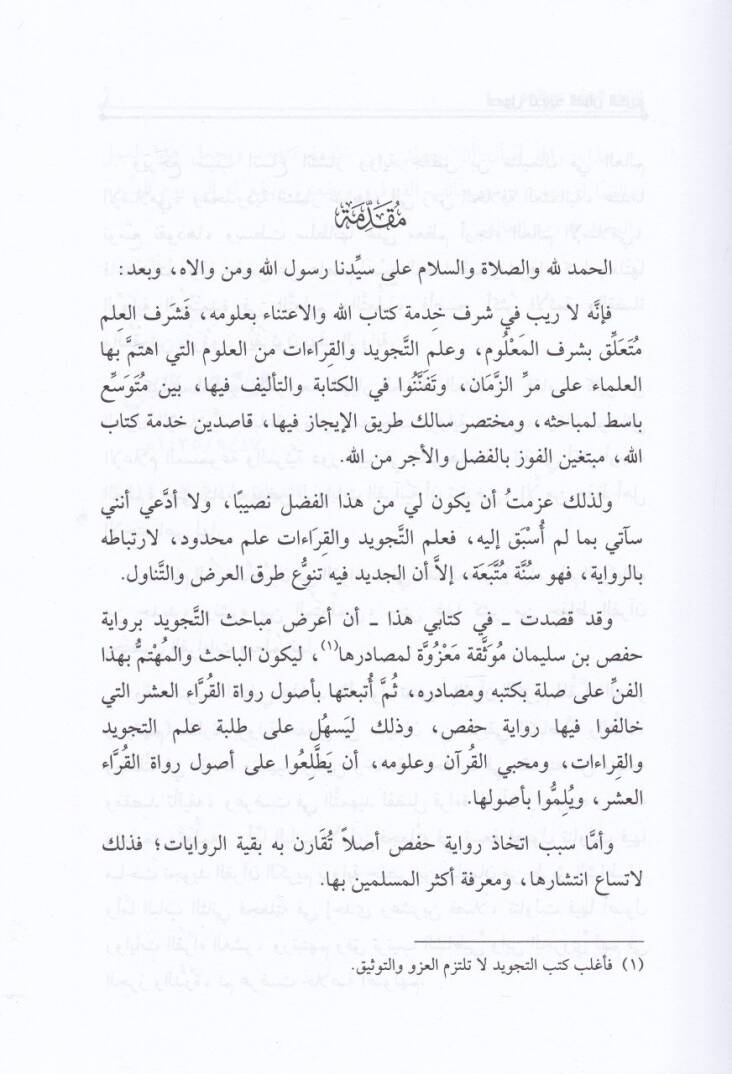 مُقَدِّمَة
الحمد لله والصلاة والسلام على سيِّدنا رسول الله ومن والاه، وبعد:
فإنَّه لا ريب في شرف خِدمة كتاب الله والاعتناء بعلومه، فَشَرف العِلم
مُتَعَلِّق بشرف المَعْلُوم، وعلم التَّجويد والقِرَاءات من العلوم التي اهتمَّ بها
العلماء على مرِّ الزَّمَان، وتَفَنَّنُوا في الكتابة والتأليف فيها، بين مُتَوَسِّع
باسط لمباحثه، ومختصر سالك طريق الإيجاز فيها، قاصدين خدمة كتاب
الله، مبتغين الفوز بالفضل والأجر من الله.
ولذلك عزمتُ أن يكون لي من هذا الفضل نصيباً، ولا أدَّعي أنني
سآتي بما لم أُسْبَق إليه، فعلم التَّجويد والقِرَاءات علم محدود، لارتباطه
بالرواية، فهو سُنَّة مُتَّبَعَة، إلاَّ أن الجديد فيه تنوُّع طرق العرض والتَّناول.
وقد قصدت ـ في كتابي هذا ـ أن أعرض مباحث التَّجويد برواية
حفص بن سليمان مُوَثَّقة مَعْزُوَّة لمصادرها(١)، ليكون الباحث والمُهْتمُّ بهذا
الفنِّ على صلة بكتبه ومصادره، ثُمَّ أُتبعتها بأصول رواة القُرَّاء العشر التي
خالفوا فيها رواية حفص، وذلك ليَسهُل على طلبة علم التجويد
والقِراءات، ومحبي القُرآن وعلومه، أن يَطَّلِعُوا على أصول رواة القُرَّاء
العشر، ويُلِمُّوا بأصولها.
وأمَّا سبب اتخاذ رواية حفص أصلاً تُقَارن به بقية الروايات؛ فذلك
لاتساع انتشارها، ومعرفة أكثر المسلمين بها.
(١) فأغلب كتب التجويد لا تلتزم العزو والتوثيق.